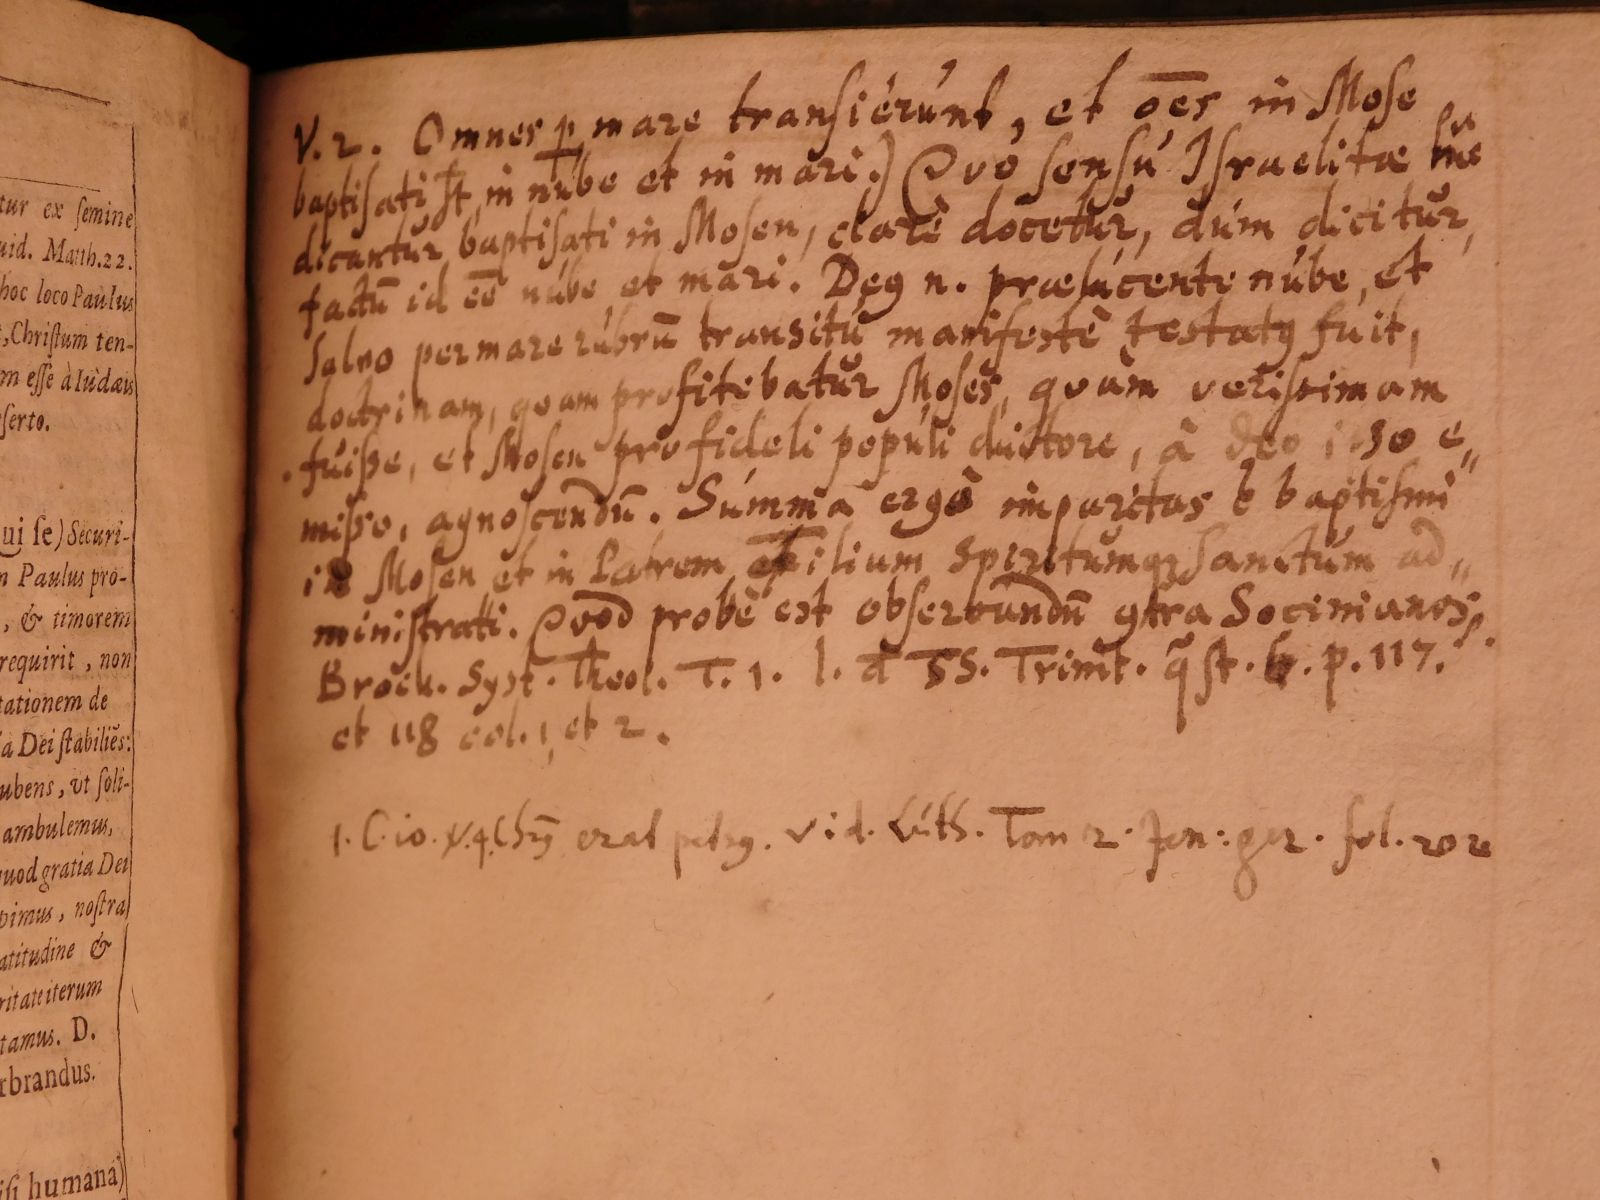 tur ex ſemine
uid. Matth. 22.
hoc loco Paulus
, Chriſtum ten-
m eſſe à Iudæis
ſerto.
ui ſe) Securi-
n Paulus pro-
, & timorem
requirit, non
tationem de
a Dei ſtabiliẽs:
ubens, vt ſoli-
ambulemus,
quod gratia Dei
pimus, noſtra
atitudine &
ritate iterum
tamus. D.
rbrandus.
iſi humana)
V. 2. Omnes p mare tranſierúnt, et oẽs in Moſe
baptiſati st, in nube et in mari.) Qvo ſenſú Iſraelitæ
dicantur baptiſati in Moſen, clarè docetur, dúm dicitur,
factū id eē núbe et mari. Deq n. prælucente núbe, et
ſalvo per mare rúbrū transitú manifestè testatq fuit,
doctrinam, quam profitebatur Moſes, quàm verissimam
fuisse, et Moſen pro fideli populi dúctore, à Deo ipso e„
misso, agnoscendū. Súmma ergò imparitas ẽ baptiſmi
in Moſen et in Patrem et Filium Spiritumqz Sanctúm ad„
miniſtrati. Qvod probè est obſervandū 9tra Socinianos.
Brock. Syst. Theol. T. 1. l. d SS. Trinit. qſt. 6. p. 117.
et 118 col. 1, et 2.
1. C. 10. v. 4. Chrq erat petrq. vid. Lúth. Tom 2. Jen: ger. fol. 202